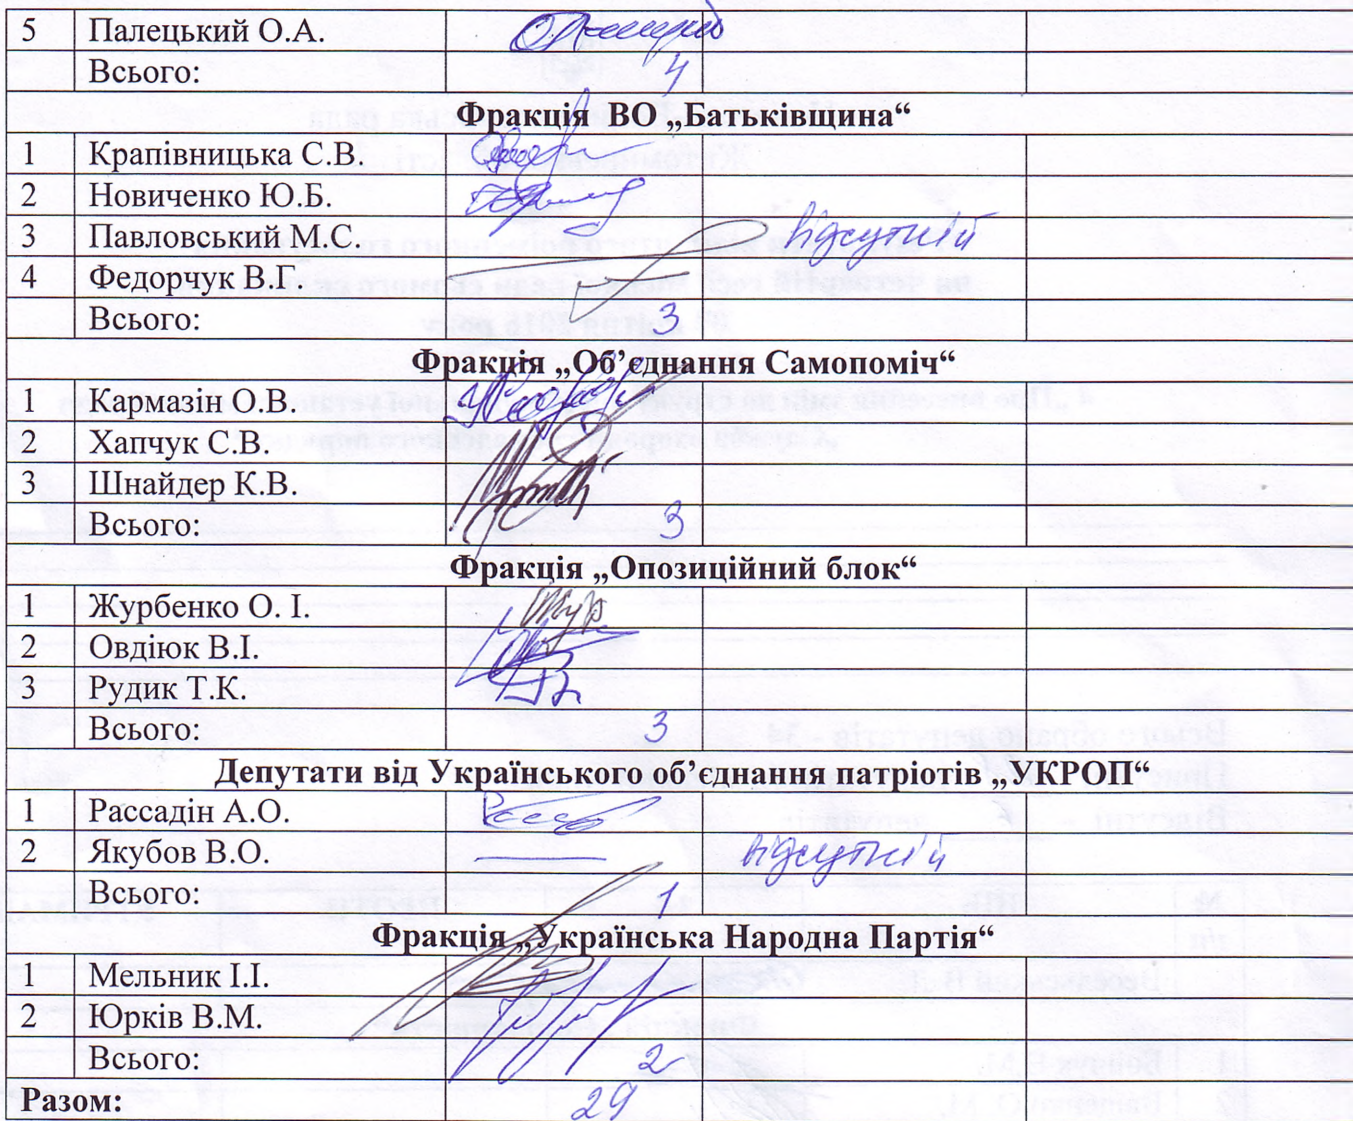 5 Палецький О.А.
Всього: 4
Фракція ВО „Батьківщина“
1 Крапівницька С.В.
2 Новиченко Ю.Б.
3 Павловський М.С. відсутній
4 Федорчук В.Г.
Всього: 3
Фракція „Об’єднання Самопоміч“
1 Кармазін О.В.
2 Хапчук С.В.
3 Шнайдер К.В.
Всього: 3
Фракція „Опозиційний блок“
1 Журбенко О. І.
2 Овдіюк В.І.
3 Рудик Т.К.
Всього: 3
Депутати від Українського об’єднання патріотів „УКРОП“
1 Рассадін А.О.
2 Якубов В.О. — відсутній
Всього: 1
Фракція „Українська Народна Партія“
1 Мельник І.І.
2 Юрків В.М.
Всього: 2
Разом: 29